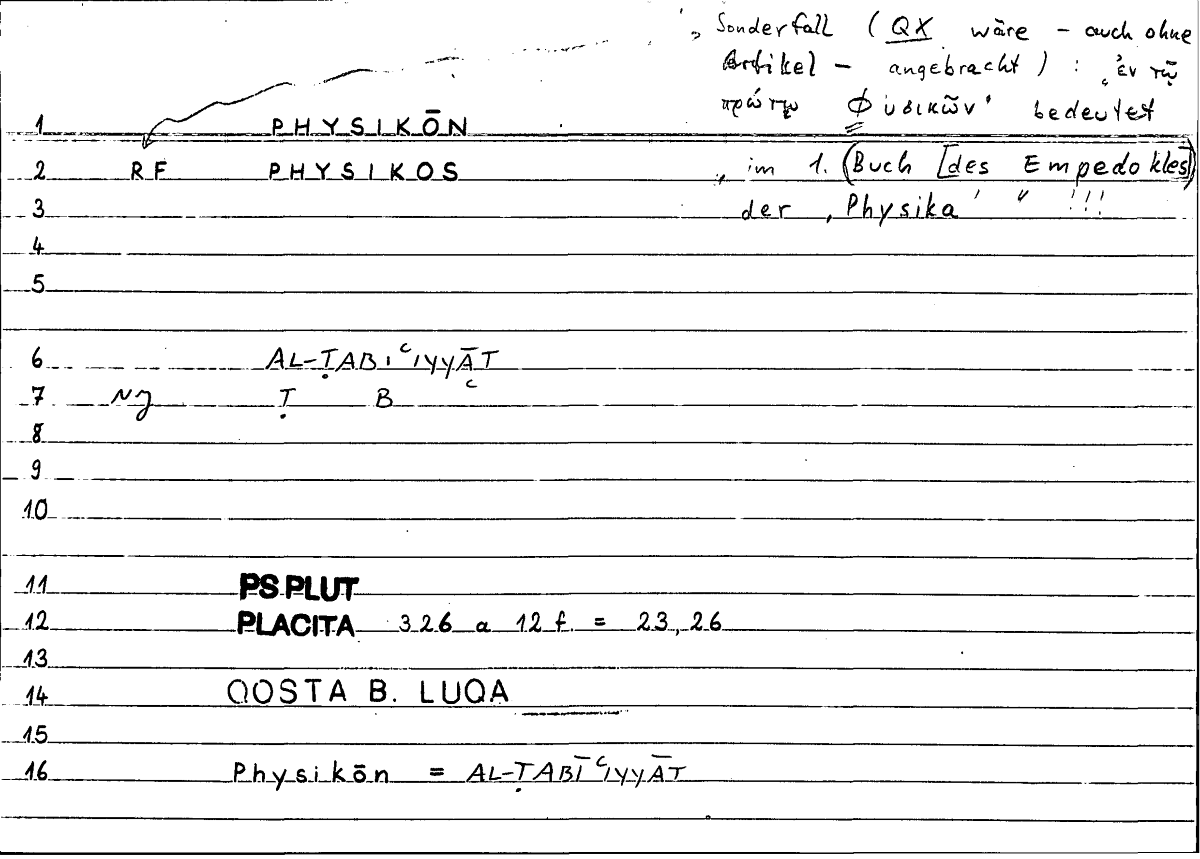 „ Sonderfall (QX wäre - auch ohne
Artikel - angebracht) : ‚ἐν τῷ
πρώτῳ Φυσικῶν' bedeutet
1 PHYSIKŌN
2 RF PHYSIKOS „ im 1. (Buch [des Empedokles])
3 der ‚Physika' “ !!!
4
5
6 AL-ṬABIʿIYYĀT
7 NJ Ṭ B ʿ
8
9
10
11 PS PLUT
12 PLACITA 326 a 12 f. = 23,26
13
14 QOSTA B. LUQA
15
16 Physikōn = AL-ṬABĪʿIYYĀT